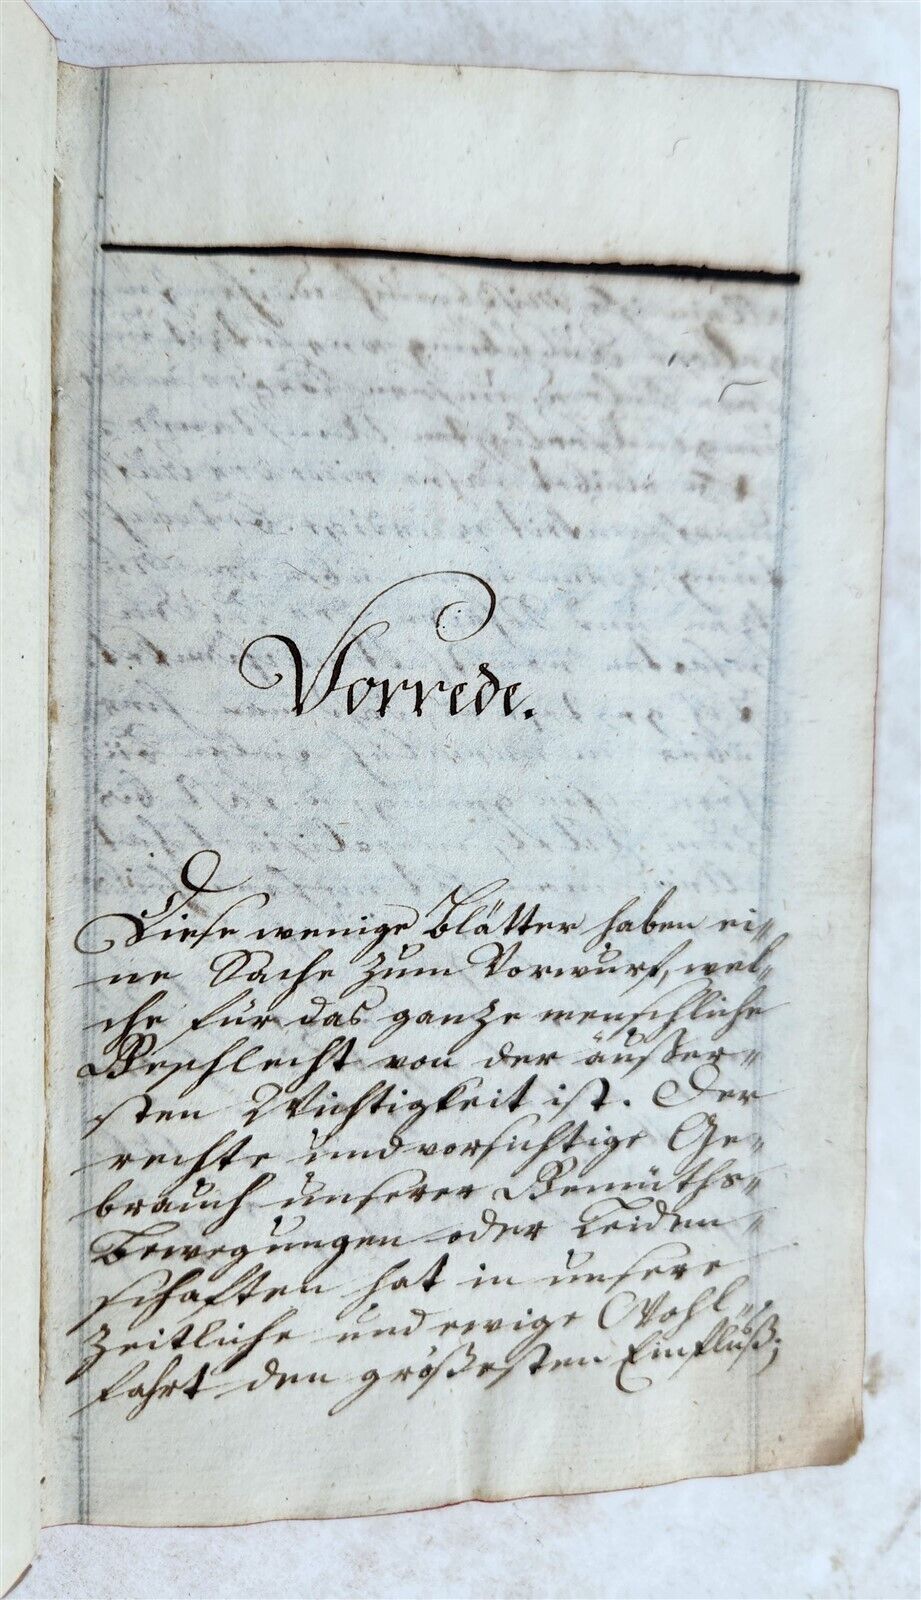 Vorrede.
Diese wenige Blätter haben ei=
ne Sache zum Vorwurf, wel=
che für das ganze menschliche
Geschlecht von der äusser=
sten Wichtigkeit ist. Der
rechte und vorsichtige Ge=
brauch unserer Gemüths=
Bewegungen oder Leiden=
schaften hat in unsere
zeitliche und ewige Wohl=
fahrt den größesten Einfluß;